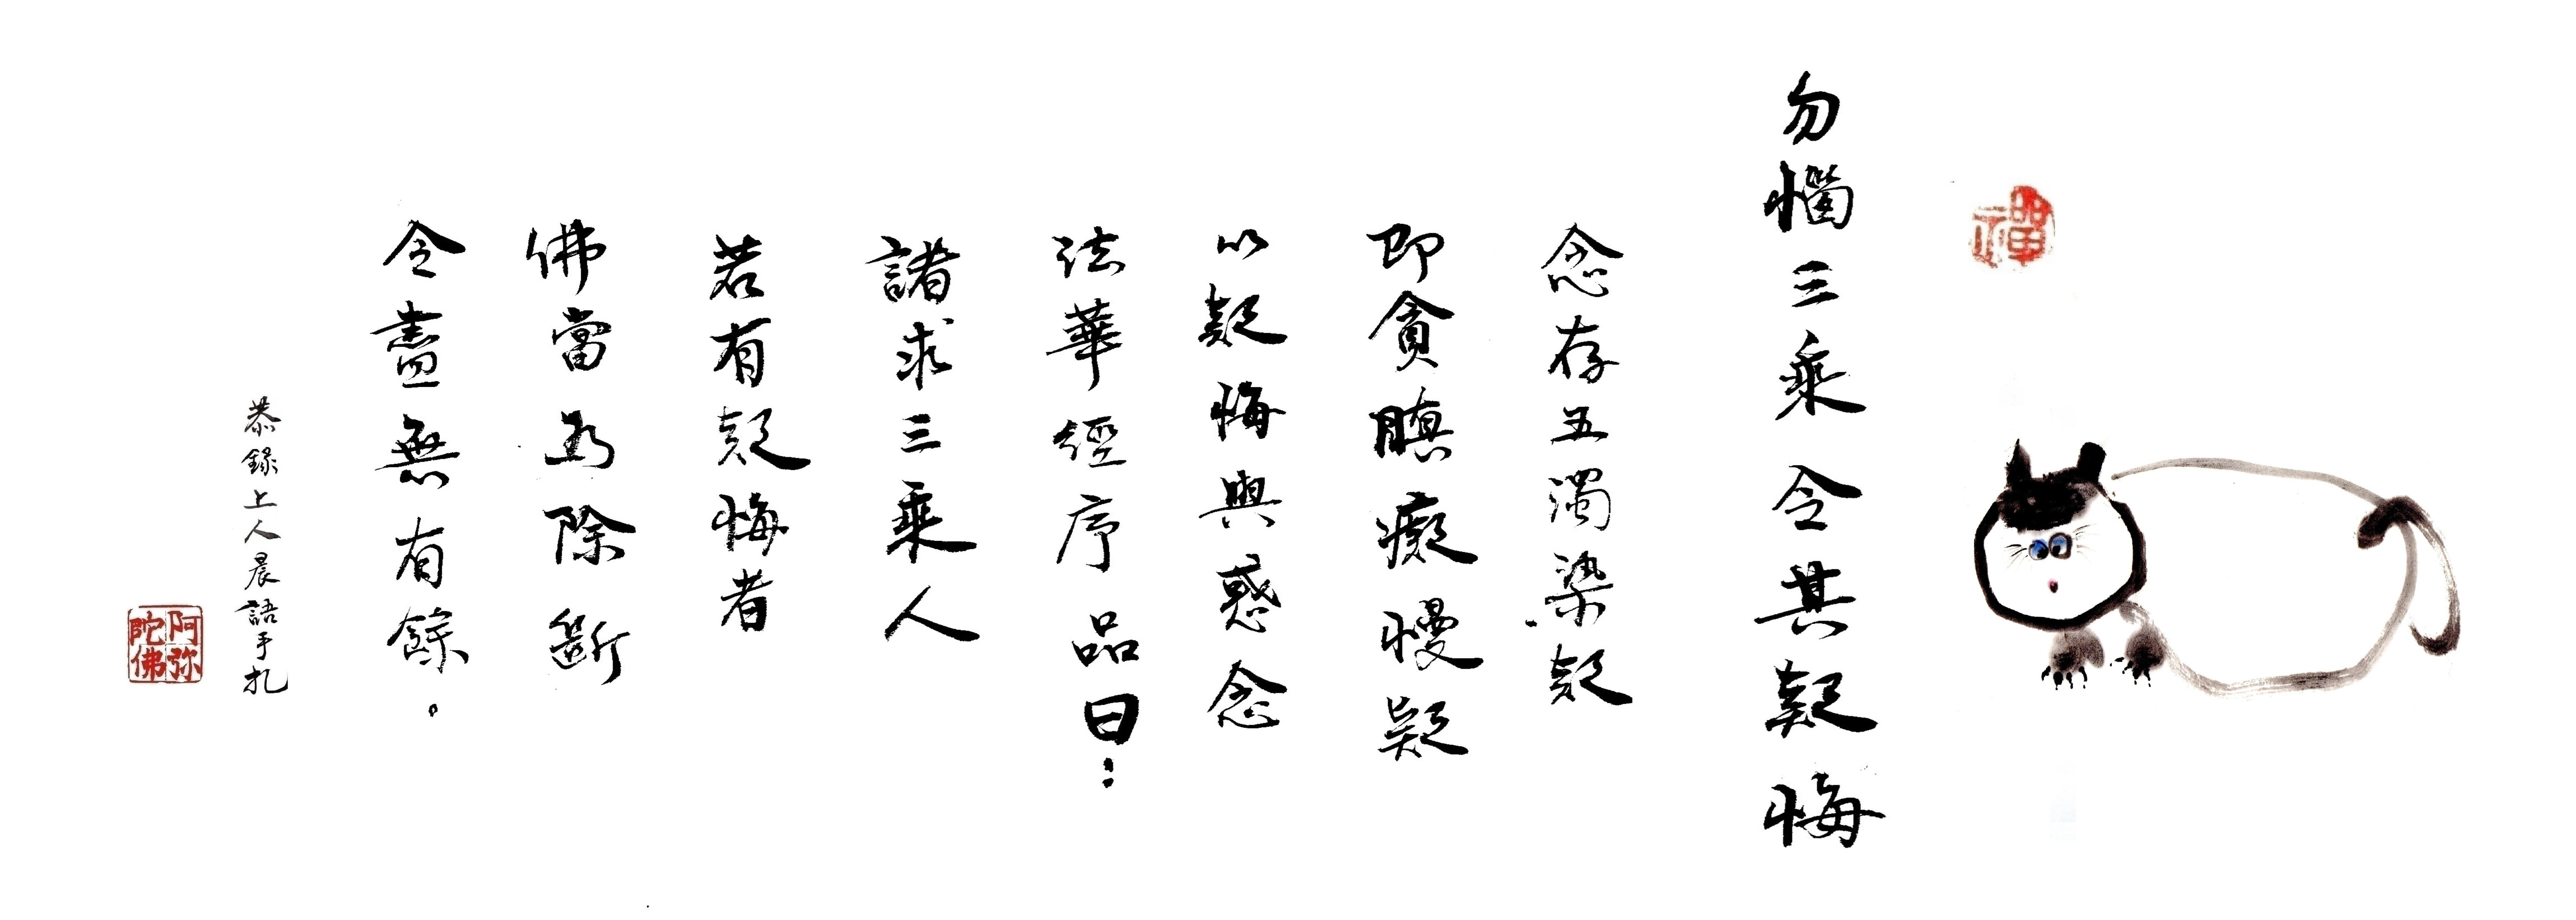 禪
勿惱三乘令其疑悔
念存五濁染疑
即貪瞋癡慢疑
以疑悔與惑念
法華經序品曰：
諸求三乘人
若有疑悔者
佛當為除斷
令盡無有餘。
恭錄上人晨語手札
阿弥陀佛